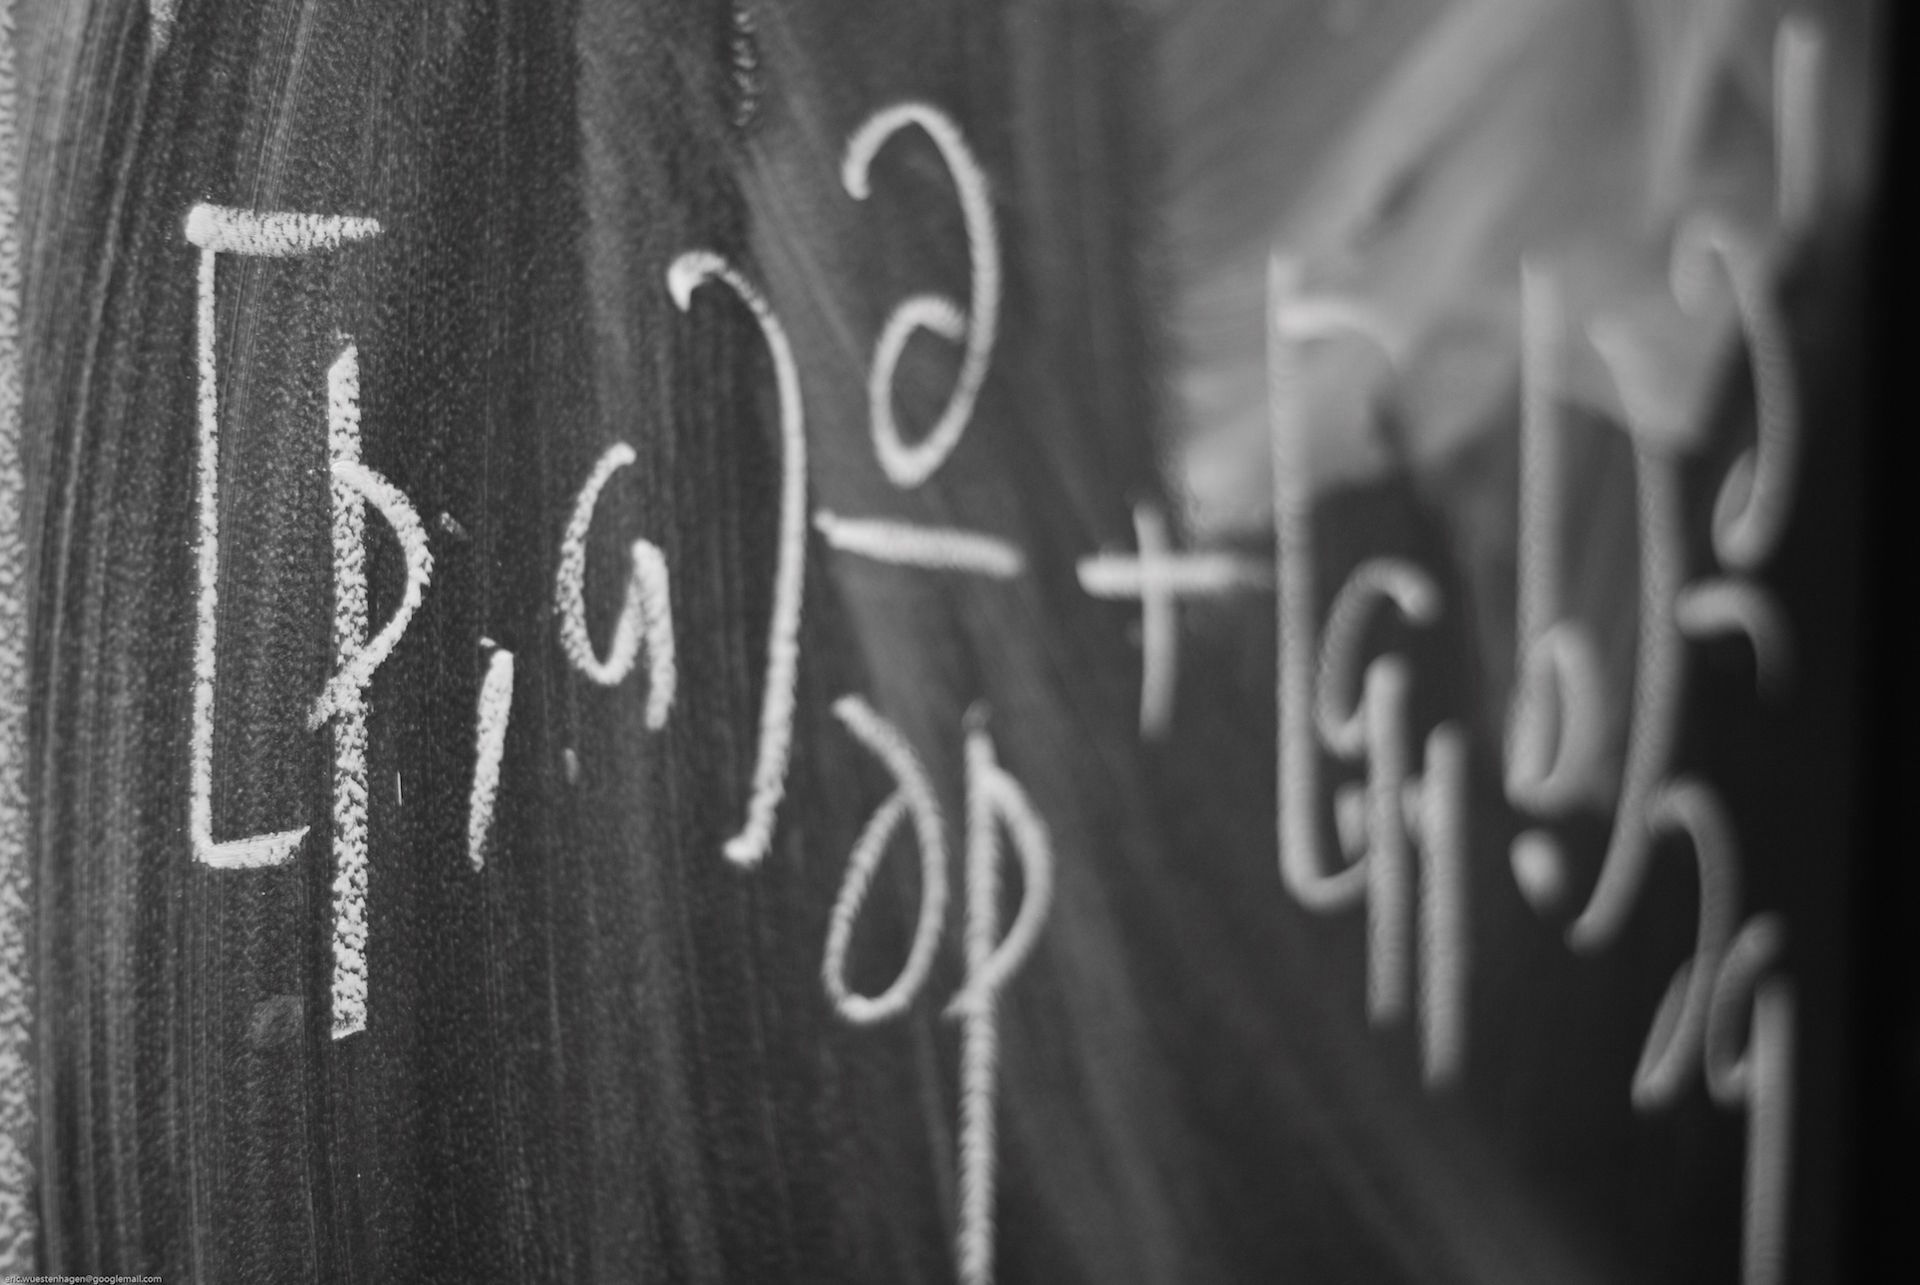 [p, a) ∂/∂p + [q, b) ∂/∂q
eric.wuestenhagen@googlemail.com